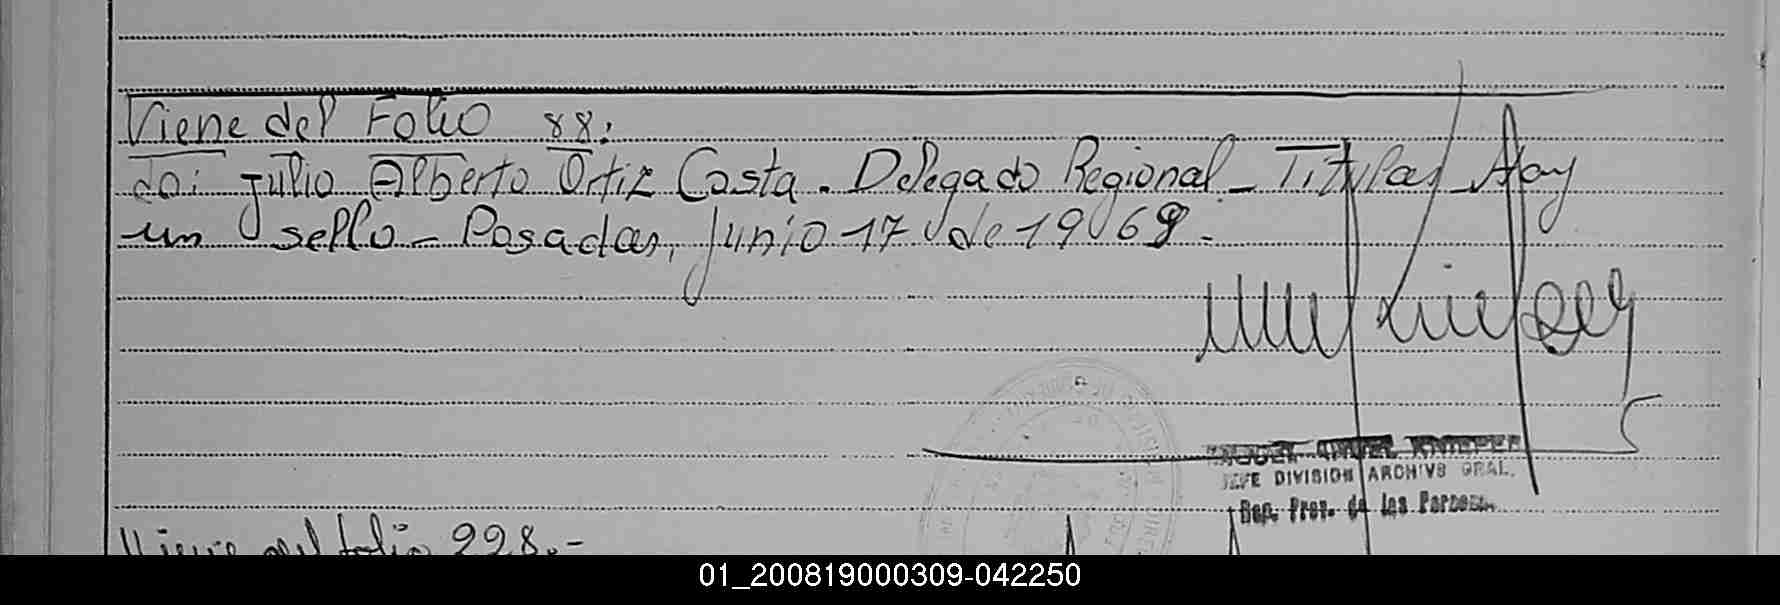 Viene del Folio 88:
do: Julio Alberto Ortiz Costa. Delegado Regional - Titular - Hay
un sello - Posadas, Junio 17 de 1969 -
MIGUEL ANGEL KNIEPER
JEFE DIVISION ARCHIVO GRAL.
Reg. Prov. de las Personas
Viene del folio 228.-
01_200819000309-042250